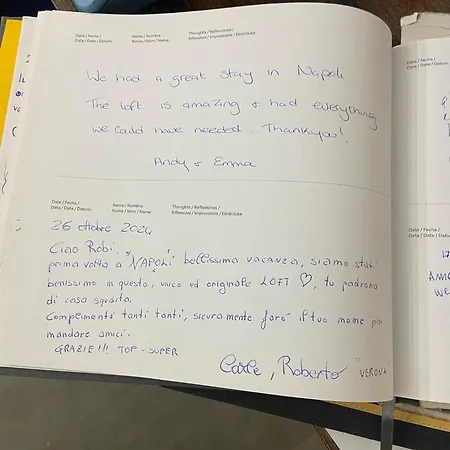 Date / Fecha / Data / Date / Datum:
Name / Nombre Nome / Nom / Name:
Thoughts / Reflexiones / Riflessioni / Impressions / Eindrücke
We had a great stay in Napoli
The loft is amazing & had everything
we could have needed... Thankyou!
Andy & Emma
Date / Fecha / Data / Date / Datum:
Name / Nombre Nome / Nom / Name:
Thoughts / Reflexiones / Riflessioni / Impressions / Eindrücke
26 ottobre 2024
Ciao Robi,
prima volta a NAPOLI bellissima vacanza, siamo stati
benissimo in questo, unico ed originale LOFT ♡, tu padrona
di casa squisita.
Complimenti tanti tanti, sicuramente farò il tuo nome per
mandare amici.
GRAZIE!!! TOP-SUPER
Roberto "VERONA"
Date / Fecha / Data / Date / Datum:
Date / Fecha / Data / Date / Datum:
17